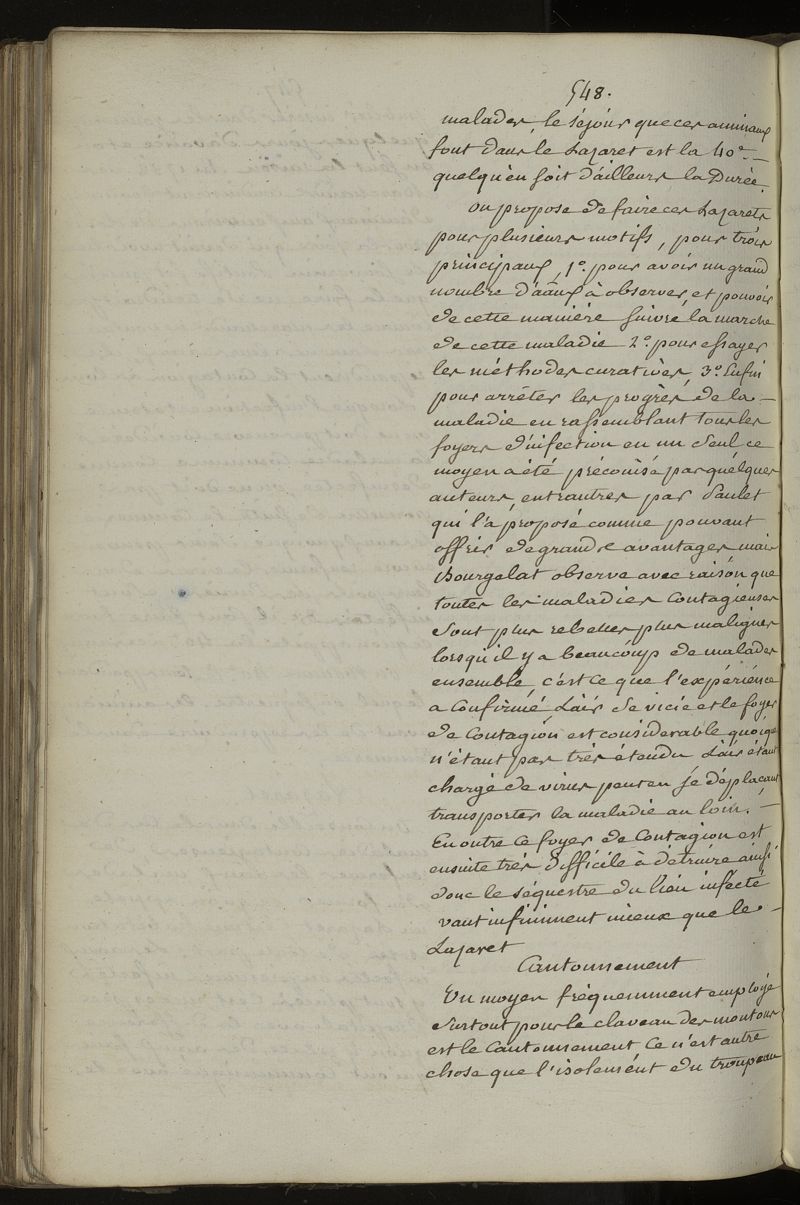 548.
malades, le séjour que ces animaux
font dans le Lazaret est la 40e —
quelqu'en soit d'ailleurs la Durée.
on propose de faire ces Lazarets
pour plusieurs motifs, pour trois
principaux, 1o. pour avoir un grand
nombre d'aäux à observer, et pouvoir
de cette manière suivre la marche
de cette maladie 2o. pour essayer
les méthodes curatives, 3o. Enfin
pour arrêter les progrès de la —
maladie en rassemblant tous les
foyers d'infection en un seul ce
moyen a été préconisé par quelques
auteurs, entrautres par Paulet
qui l'a proposé comme pouvant
offrir de grands avantages mais
Bourgelat observe avec raison que
toutes les maladies Contagieuses
sont plus rebelles plus malignes
lorsqu'il y a beaucoup de malades
ensemble, c'est ce que l'expérience
a Confirmé L'air se vicie et le foyer
de Contagion est considerable quoique
n'étant pas très étendu L'air étant
chargé de virus peut en se déplaçant
transporter la maladie au loin. —
En outre ce foyer de Contagion est
ensuite très difficile à détruire ainsi
donc le séquestre du lieu infecté
vaut infiniment mieux que le —
Lazaret
Cantonnement
Un moyen fréquemment employé
surtout pour le claveau des moutons
est le Cantonnement Ce n'est autre
chose que l'isolement du troupeau